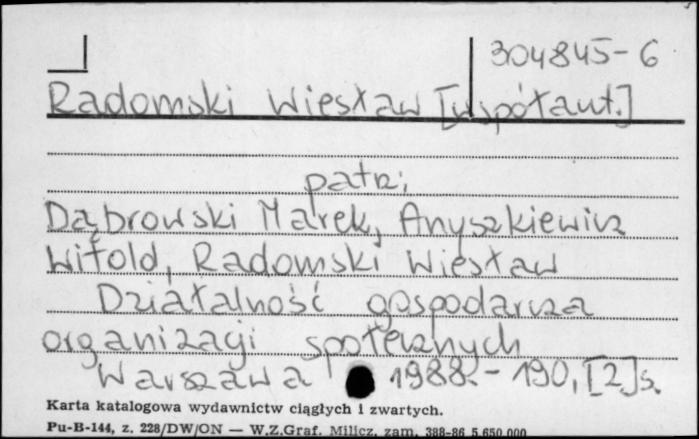 304845-6
Radomski Wiesław [współaut.]
patrz:
Dąbrowski Marek, Anyszkiewicz
Witold, Radomski Wiesław
Działalność gospodarcza
organizacji społecznych
Warszawa 1988.- 190,[2]s.
Karta katalogowa wydawnictw ciągłych i zwartych.
Pu-B-144, z. 228/DW/ON — W.Z.Graf. Milicz, zam. 388-86 5.650.000